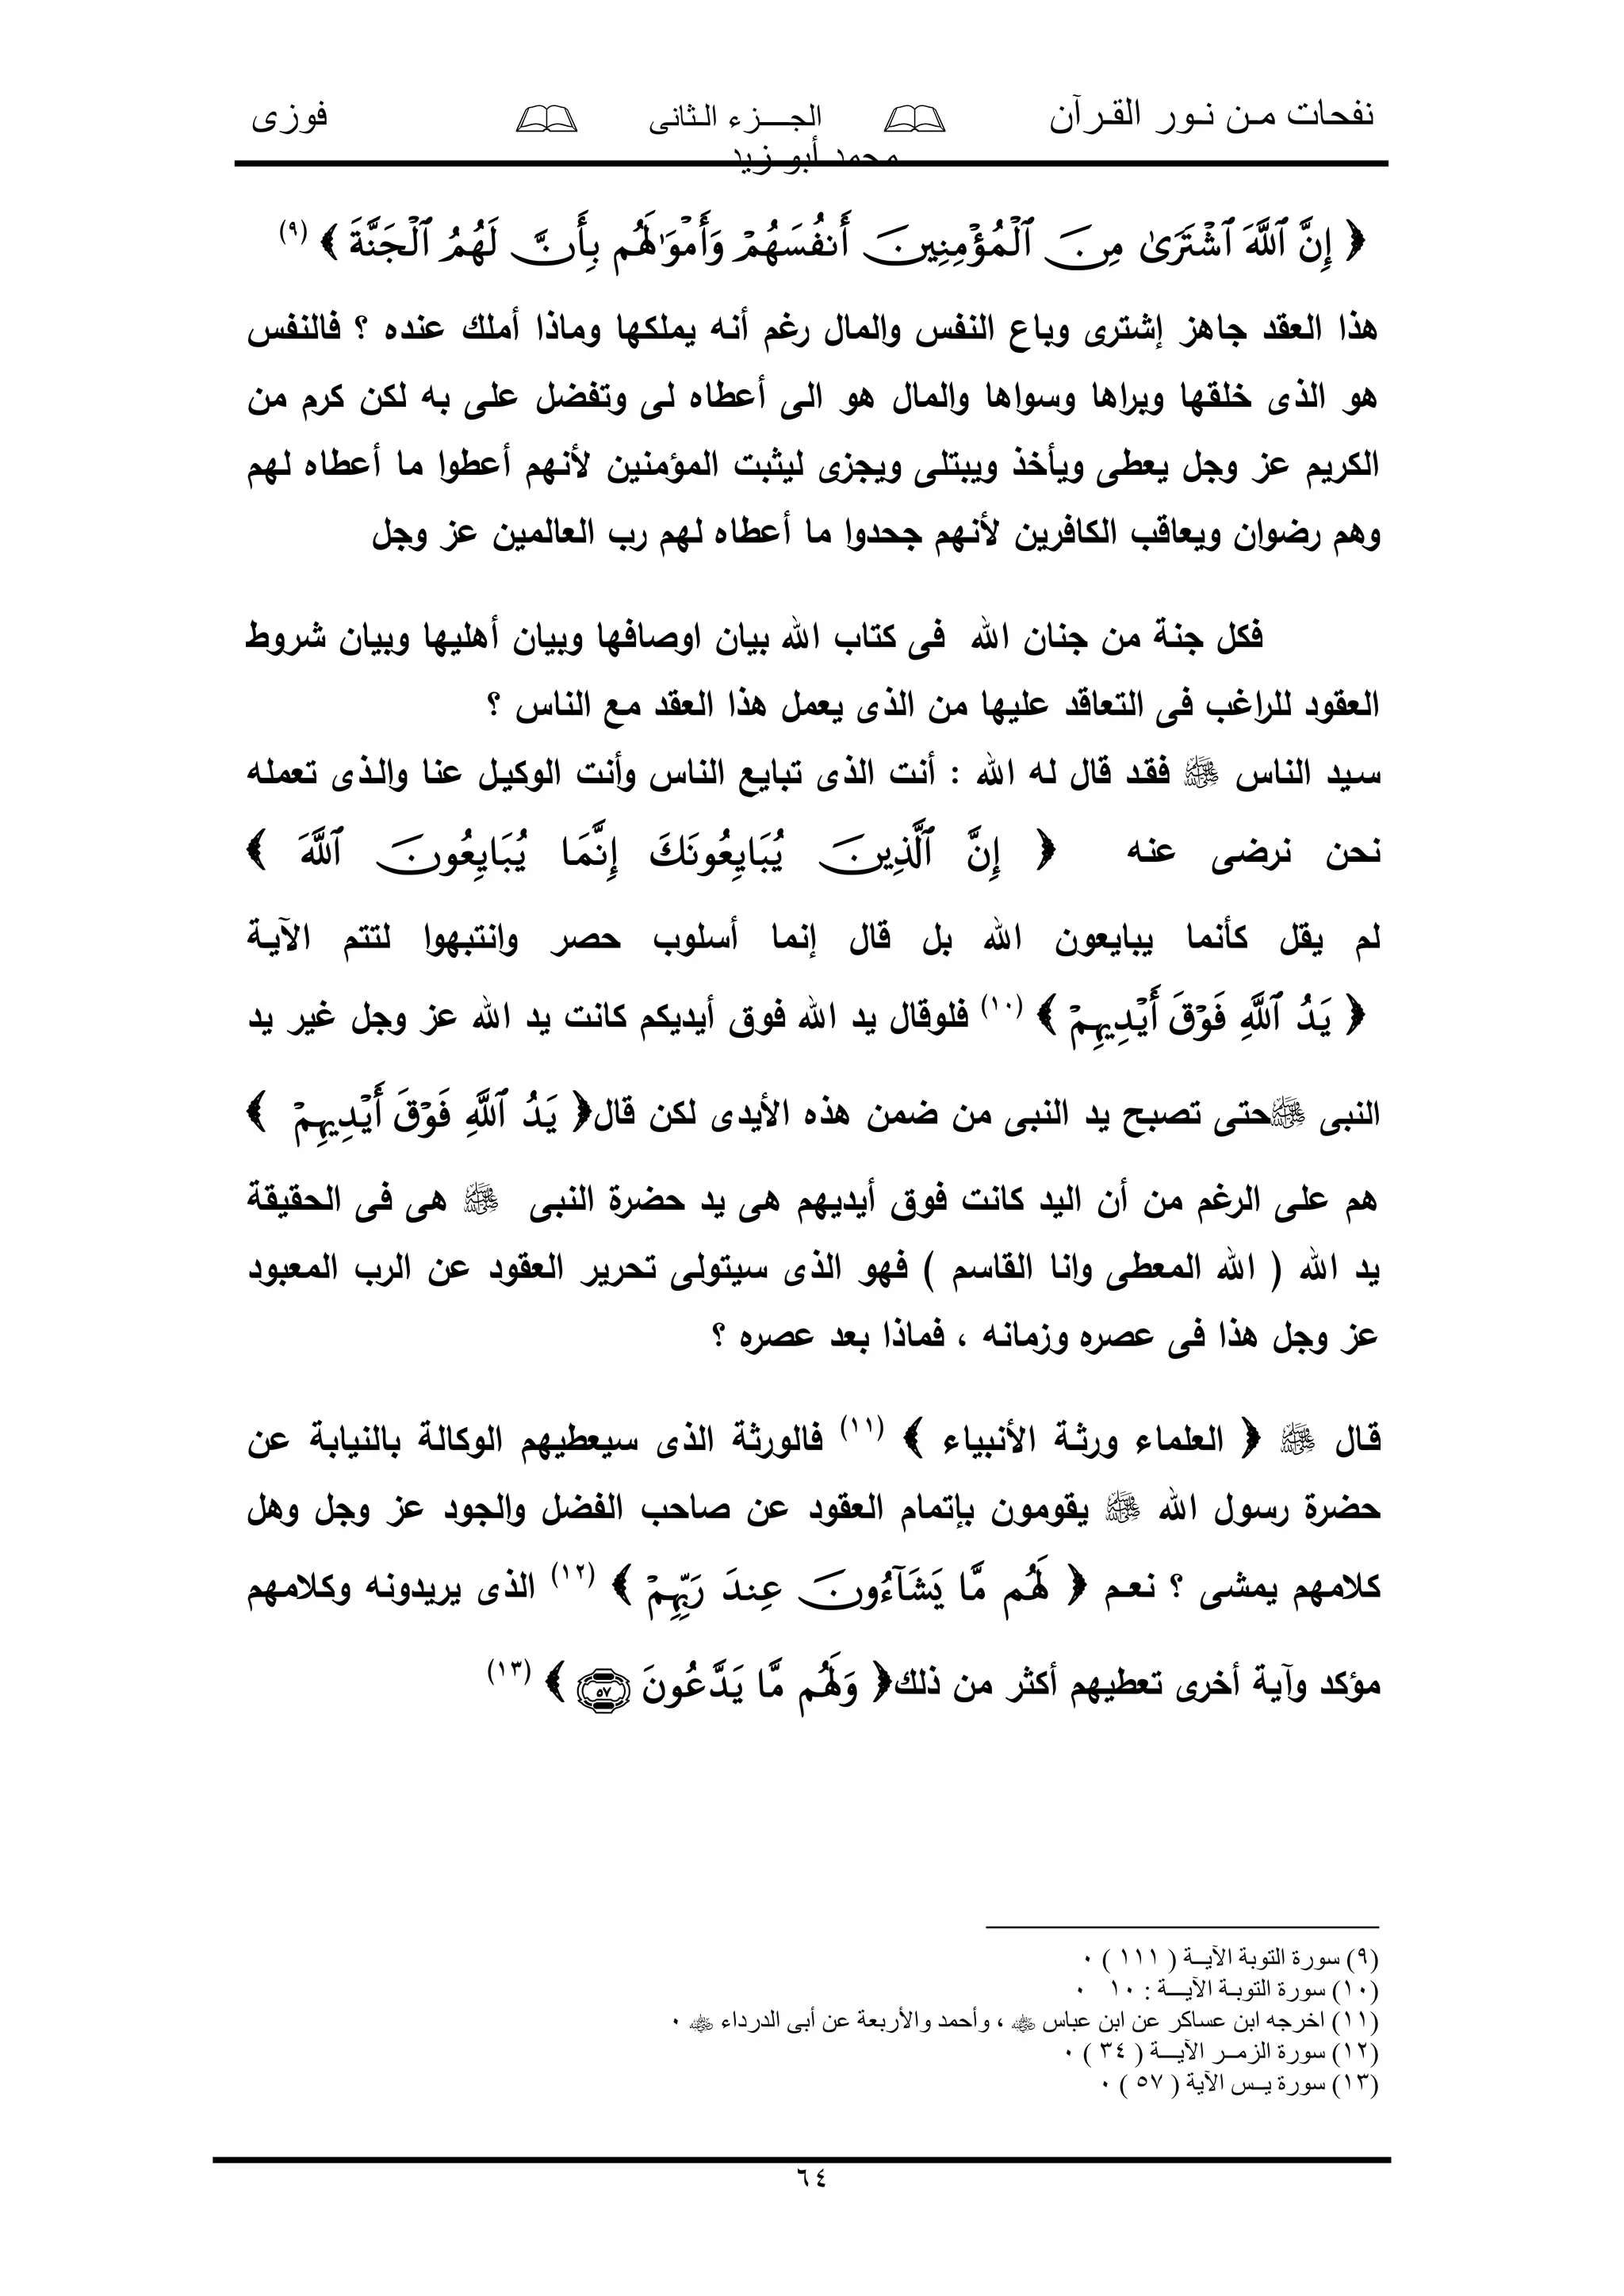 نفحات مـن نـور القـرآن 🕮 الجــــزء الـثانى 🕮 فوزى
محمد أبو زيد
﴿ إِنَّ ٱللَّهَ ٱشْتَرَىٰ مِنَ ٱلْمُؤْمِنِينَ أَنفُسَهُمْ وَأَمْوَٰلَهُم بِأَنَّ لَهُمُ ٱلْجَنَّةَ ﴾ (٩)
هذا العقد جاهز إشترى وباع النفس والمال رغم أنه يملكها وماذا أملك عنده ؟ فالنفس
هو الذى خلقها وبراها وسواها والمال هو الى أعطاه لى وتفضل على به لكن كرم من
الكريم عز وجل يعطى ويأخذ ويبتلى ويجزى ليثبت المؤمنين لأنهم أعطوا ما أعطاه لهم
وهم رضوان ويعاقب الكافرين لأنهم جحدوا ما أعطاه لهم رب العالمين عز وجل
فكل جنة من جنان الله فى كتاب الله بيان اوصافها وبيان أهليها وبيان شروط
العقود للراغب فى التعاقد عليها من الذى يعمل هذا العقد مع الناس ؟
سـيد الناس ﷺ فقـد قال له الله : أنت الذى تبايع الناس وأنت الوكيـل عنا والـذى تعمله
نحن نرضى عنه ﴿ إِنَّ ٱلَّذِينَ يُبَايِعُونَكَ إِنَّمَا يُبَايِعُونَ ٱللَّهَ ﴾
لم يقل كأنما يبايعون الله بل قال إنما أسلوب حصر وانتبهوا لتتم الآيـة
﴿ يَدُ ٱللَّهِ فَوْقَ أَيْدِيهِمْ ﴾ (١٠) فلوقال يد الله فوق أيديكم كانت يد الله عز وجل غير يد
النبى ﷺحتى تصبح يد النبى من ضمن هذه الأيدى لكن قال﴿ يَدُ ٱللَّهِ فَوْقَ أَيْدِيهِمْ ﴾
هم على الرغم من أن اليد كانت فوق أيديهم هى يد حضرة النبى ﷺ هى فى الحقيقة
يد الله ( الله المعطى وانا القاسم ) فهو الذى سيتولى تحرير العقود عن الرب المعبود
عز وجل هذا فى عصره وزمانه ، فماذا بعد عصره ؟
قـال ﷺ ﴿ العلماء ورثـة الأنبياء ﴾ (١١) فالورثة الذى سيعطيهم الوكالة بالنيابة عن
حضرة رسول الله ﷺ يقومون بإتمام العقود عن صاحب الفضل والجود عز وجل وهل
كلامهم يمشى ؟ نعـم ﴿ لَهُم مَّا يَشَآءُونَ عِندَ رَبِّهِمْ ﴾ (١٢) الذى يريدونه وكلامهم
مؤكد وآية أخرى تعطيهم أكثر من ذلك﴿ وَلَهُم مَّا يَدَّعُونَ ٥٧ ﴾ (١٣)
(٩) سورة التوبة الآيــة ( ١١١ ) ٠
(١٠) سورة التوبـة الآيـــة : ١٠ ٠
(١١) اخرجه ابن عساكر عن ابن عباس ﷺ ، وأحمد والأربعة عن أبى الدرداء ﷺ ٠
(١٢) سورة الزمــر الآيـــة ( ٣٤ ) ٠
(١٣) سورة يــس الآية ( ٥٧ ) ٠
٦٤